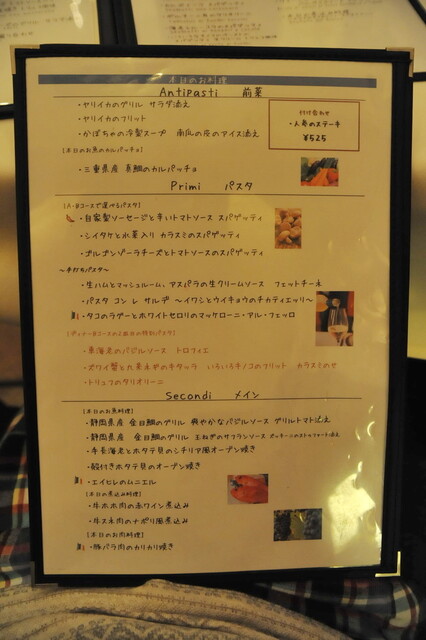 本日のお料理
Antipasti 前菜
・ヤリイカのグリル サラダ添え
・ヤリイカのフリット
・かぼちゃの冷製スープ 南瓜の皮のアイス添え
付け合わせ
・人参のステーキ
¥525
[本日のお魚のカルパッチョ]
・三重県産 真鯛のカルパッチョ
Primi パスタ
[A・Bコースで選べるパスタ]
・自家製ソーセージと辛いトマトソース スパゲッティ
・シイタケと水菜入り カラスミのスパゲッティ
・ゴルゴンゾーラチーズとトマトソースのスパゲッティ
～手打ちパスタ～
・生ハムとマッシュルーム、アスパラの生クリームソース フェットチーネ
・パスタ コン レ サルデ ～イワシとウイキョウのチカティエッリ～
・タコのラグーとホワイトセロリのマッケローニ・アル・フェッロ
[ディナーBコースの上級者の特別パスタ]
・車海老のバジルソース トロフィエ
・ズワイ蟹と九条ネギのキタッラ いろいろキノコのフリット カラスミのせ
・トリュフのタリオリーニ
Secondi メイン
[本日のお魚料理]
・静岡県産 金目鯛のグリル 爽やかなバジルソース グリルトマト添え
・静岡県産 金目鯛のグリル 玉ねぎのサフランソース
・手長海老とホタテ貝のシチリア風オーブン焼き
・殻付きホタテ貝のオーブン焼き
・エイヒレのムニエル
[本日の煮込み料理]
・牛ホホ肉の赤ワイン煮込み
・牛スネ肉のナポリ風煮込み
[本日のお肉料理]
・豚バラ肉のカリカリ焼き